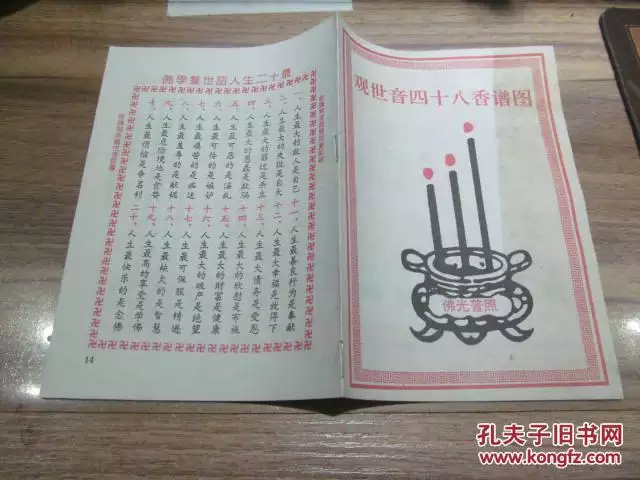 观世音四十八香谱图
佛光普照
佛學警世語人生二十最
一、人生最大的敌人是自己 十一、人生最善良行为是奉献
二、人生最大的失败是自大 十二、人生最大幸福是放得下
三、人生最大的罪过是杀生 十三、人生最大债务是受恩
四、人生最大的愚蠢是欺骗 十四、人生最大的欣慰是布施
五、人生最可恶的是淫乱 十五、人生最大的财富是健康
六、人生最可怜的是嫉妒 十六、人生最大的破产是绝望
七、人生最痛苦的是痴迷 十七、人生最可佩服是精进
八、人生最羞辱的是献媚 十八、人生最缺欠的是智慧
九、人生最危险境地是贪婪 十九、人生最高的享受是学佛
十、人生最烦恼是争名利 二十、人生最快乐的是念佛
14
孔夫子旧书网
www.kongfz.com